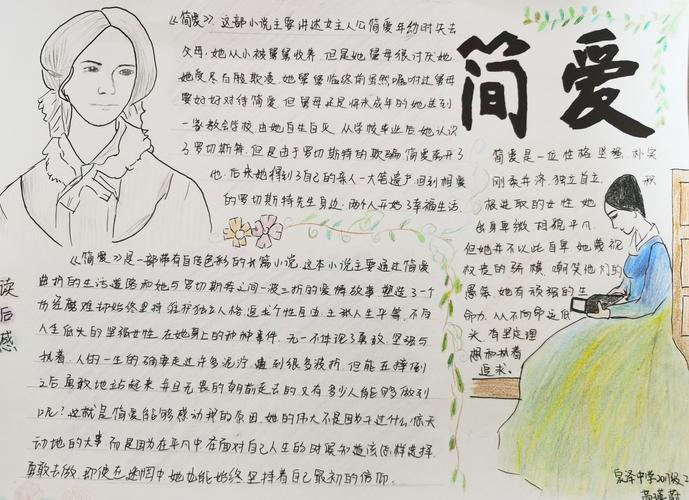 简爱
《简爱》,这部小说主要讲述女主人公简爱年幼时失去
父母,她从小被舅舅收养,但是她舅母很讨厌她,
她受尽白般欺凌,她舅舅临终前虽然嘱咐过舅母
要好好对待简爱,但舅母还是将未成年的她送到
一客教会学校,由她自生自灭,从学校毕业后她认识
了罗切斯特,但是由于罗切斯特的欺骗,简爱离开了
他,后来她得到了自己的亲人一大笔遗产,回到相爱
的罗切斯特先生身边,两个人开始了幸福生活.
简爱是一位性格坚强,朴实
刚柔并济,独立自立,积
极进取的女性,她
出身卑微,相貌平凡
但她并不以此自卑,她蔑视
权贵的骄横,嘲笑他们的
愚笨,她有顽强的生
命力,从不向命运低
头,有里
想和执着
追求。
读后感
《简爱》是一部带有自传色彩的长篇小说,这本小说主要通过简爱
曲折的生活道路和她与罗切斯特之间一波三折的爱情故事,塑造了一个
历经磨难却始终坚持维护独立人格,追求个性自由,主张人生平等,不向
人生低头的坚强女性,在她身上的种种事件,无一不体现了勇敢,坚强与
执着,人的一生的确要走过许多泥泞,遭到很多波折,但能在摔倒
之后勇敢地站起来,并且无畏的朝前走去的又有多少人能够做到
呢?这就是简爱能够感动我的原因,她的伟大不是因为干过什么惊天
动地的大事,而是因为在平凡中,在面对自己人生的时候知道该怎样选择,
勇敢去做,即使在迷惘中,她也能始终坚持着自己最初的信仰.
泉泽中学